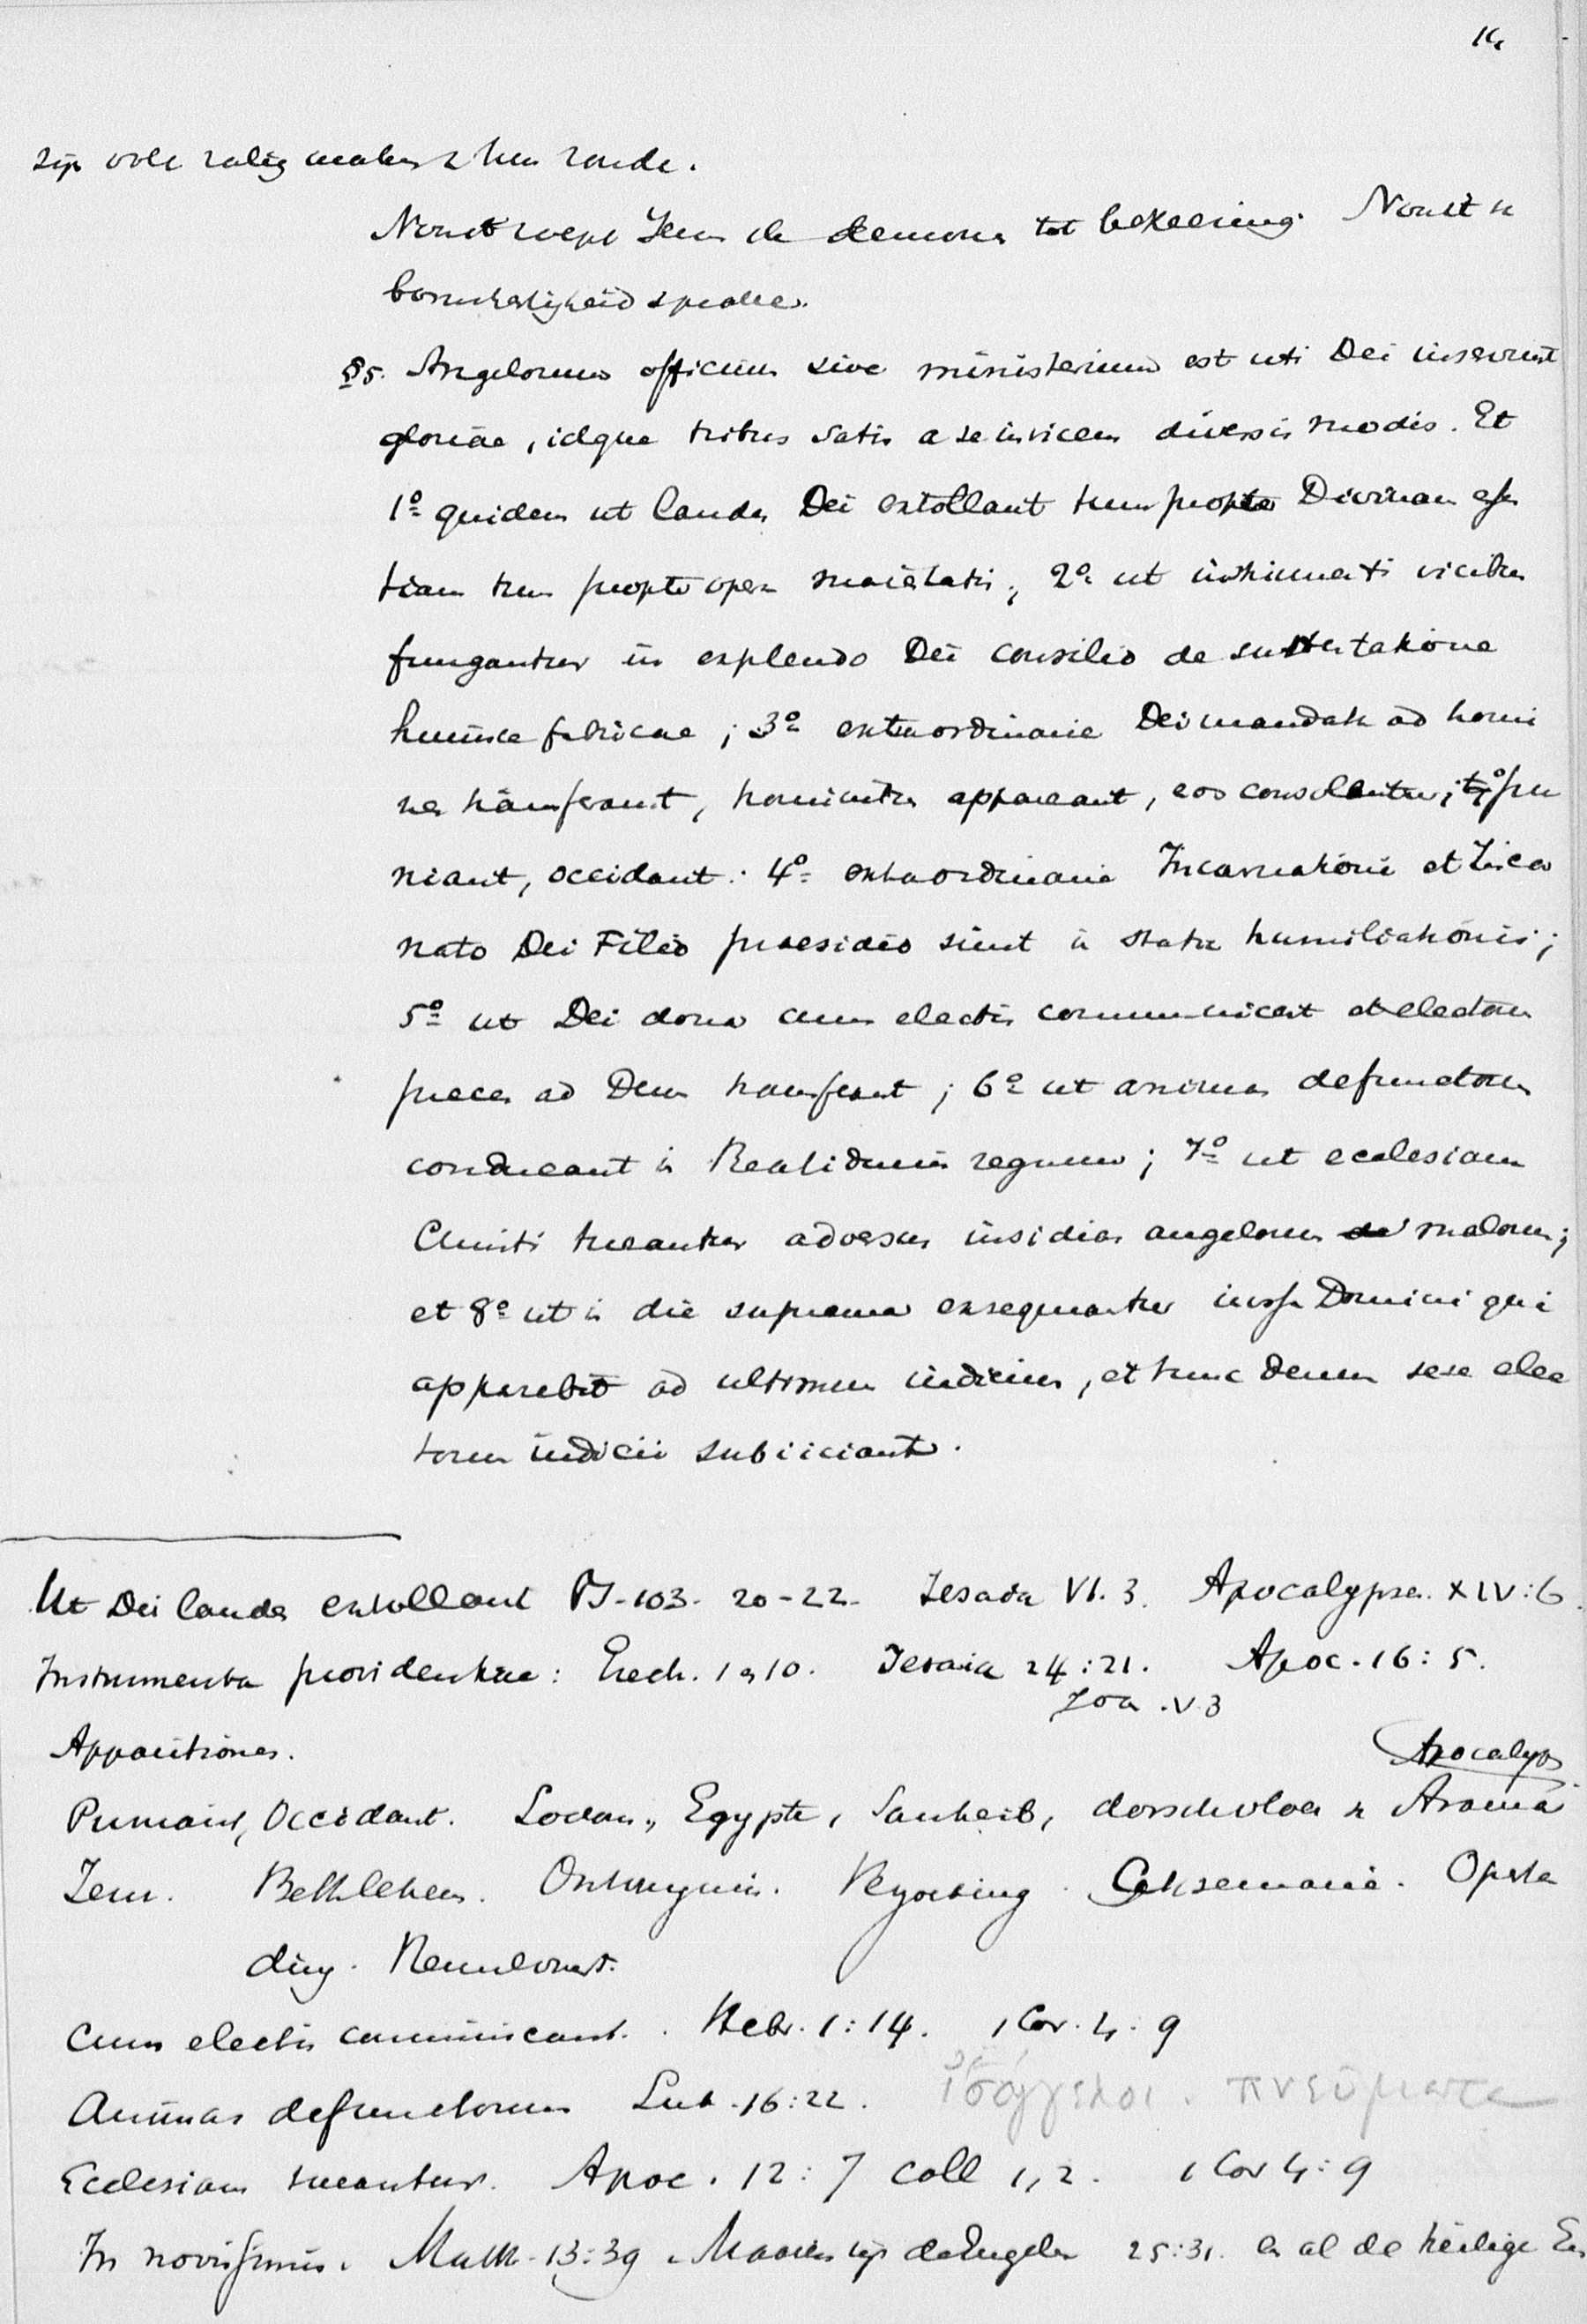 14
zijn volk zalig maken v hun zonde.
Nooit roept Jezus de demonen tot bekeering. Nooit v
barmhartigheid sprake.
§5. Angelorum officium sive ministerium est uti Dei inserviant
gloriae, idque tribus satis a se invicem diversis modis. Et
1º quidem ut laudes Dei extollant tum propter Divinam essen
tiam tum propter opera maiestatis; 2º ut instrumenti vicibus
fungantur in explendo Dei consilio de sustentatione
huiusce fabricae; 3º extraordinarie Dei mandata ad homi
nes transferant, hominibus appareant, eos consolentur; pu
niant, occidant: 4º extraordinarie Incarnationi et Incar
nato Dei Filio praesidio sint in statu humiliationis;
5º ut Dei dona cum electis communicent et electorum
preces ad Deum transferant; 6º ut animas defunctorum
conducant in Beatitudinis regnum; 7º ut ecclesiam
Christi tueantur adversus insidias angelorum malorum;
et 8º ut in die suprema exsequantur iussa Domini qui
apparebit ad ultimum iudicium, et tunc demum sese elec
torum iudicii subiiciant.
Ut Dei laudes extollant Ps. 103. 20-22. Jesaia VI. 3. Apocalypse. XIV:6.
Instrumenta providentiae: Ezech. 1 en 10. Jesaia 24:21. Apoc. 16:5.
Joa. V. 3
Apparitiones.
Apocalyps
Puniant, Occidant. Sodom, Egypte, Sanherib, dorschvloer v Arauna
Jezus. Bethlehem. Ontvangenis. Verzoeking. Gethsemané. Opstan
ding. Hemelvaart.
Cum electis communicant. Hebr. 1:14. 1 Cor. 4:9
Animas defunctorum Luk. 16:22. ἰσάγγελοι. πνεύματα
Ecclesiam tueantur. Apoc. 12:7 coll 1,2. 1 Cor 4:9
In novissimis. Matth. 13:39. Maaiers zijn de Engelen 25:31. en al de heilige En